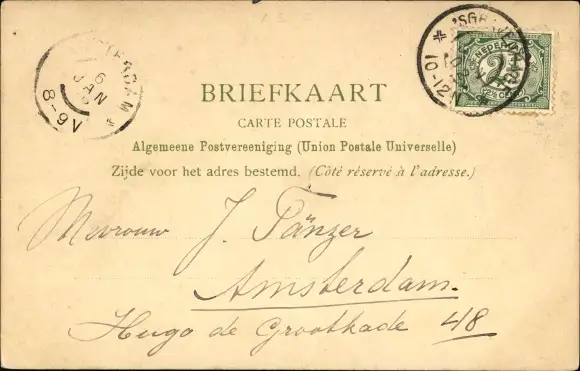 AMSTERDAM
6 JAN
8-9V
'SGRAVENHAGE
10-12N
NEDERLAND
2½
2½ Ct
BRIEFKAART
CARTE POSTALE
Algemeene Postvereeniging (Union Postale Universelle)
Zijde voor het adres bestemd. (Côté réservé à l'adresse.)
Mevrouw J. Tänzer
Amsterdam.
Hugo de Grootkade 48